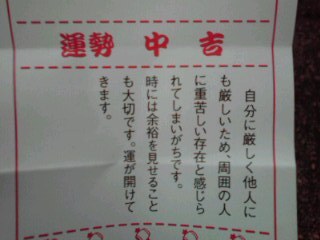 運勢 中吉
自分に厳しく他人に
も厳しいため、周囲の人
に重苦しい存在と感じら
れてしまいがちです。
時には余裕を見せること
も大切です。運が開けて
きます。